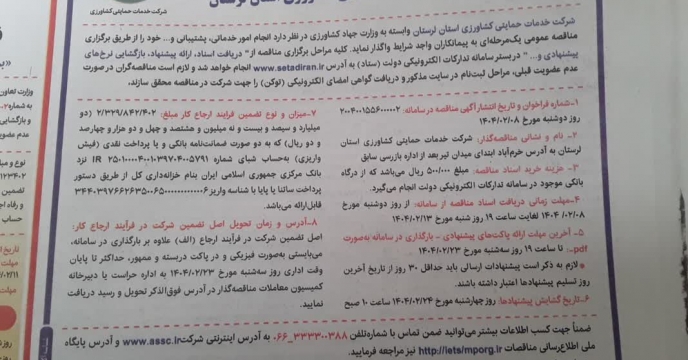 شرکت خدمات حمایتی کشاورزی
شرکت خدمات حمایتی کشاورزی استان لرستان وابسته به وزارت جهاد کشاورزی در نظر دارد انجام امور خدماتی، پشتیبانی و... خود را از طریق برگزاری
مناقصه عمومی یک‌مرحله‌ای به پیمانکاران واجد شرایط واگذار نماید. کلیه مراحل برگزاری مناقصه از "دریافت اسناد، ارائه پیشنهاد، بازگشایی نرخ‌های
پیشنهادی و... " در بستر سامانه تدارکات الکترونیکی دولت (ستاد) به آدرس www.setadiran.ir انجام خواهد شد و لازم است مناقصه‌گران در صورت
عدم عضویت قبلی، مراحل ثبت‌نام در سایت مذکور و دریافت گواهی امضای الکترونیکی (توکن) را جهت شرکت در مناقصه محقق سازند.
۱-شماره فراخوان و تاریخ انتشار آگهی مناقصه در سامانه: ۲۰۰۴۰۰۱۵۵۶۰۰۰۰۰۲
روز دوشنبه مورخ ۱۴۰۴/۰۲/۰۸
۲- نام و نشانی مناقصه‌گذار: شرکت خدمات حمایتی کشاورزی استان
لرستان به آدرس خرم‌آباد ابتدای میدان تیر بعد از اداره بازرسی سابق
۳- هزینه خرید اسناد مناقصه: مبلغ ۵۰۰/۰۰۰ ریال می‌باشد که از درگاه
بانکی موجود در سامانه تدارکات الکترونیکی دولت انجام می‌گیرد.
۴-مهلت زمانی دریافت اسناد مناقصه از سامانه: از روز دوشنبه مورخ
۱۴۰۴/۰۲/۰۸ لغایت ساعت ۱۹ روز شنبه مورخ ۱۴۰۴/۰۲/۱۳
۵- آخرین مهلت ارائه پاکت‌های پیشنهادی - بارگذاری در سامانه به‌صورت
pdf.: تا ساعت ۱۹ روز سه‌شنبه مورخ ۱۴۰۴/۰۲/۲۳
* لازم به ذکر است پیشنهادات ارسالی باید حداقل ۳۰ روز از تاریخ آخرین
روز تسلیم پیشنهادها اعتبار داشته باشند.
۶-تاریخ گشایش پیشنهادها: روز چهارشنبه مورخ ۱۴۰۴/۰۲/۲۴ ساعت ۱۰ صبح
۷-میزان و نوع تضمین فرایند ارجاع کار مبلغ: ۲/۳۲۹/۸۴۲/۴۰۲ (دو
میلیارد و سیصد و بیست و نه میلیون و هشتصد و چهل و دو هزار و چهارصد
و دو ریال) که به دو صورت ضمانت‌نامه بانکی و یا پرداخت نقدی (فیش
واریزی) به‌حساب شبای شماره
بانک مرکزی جمهوری اسلامی ایران بنام خزانه‌داری کل از طریق دستور
پرداخت ساتنا یا پایا با شناسه واریز
قابل‌ارائه می‌باشد.
۸-آدرس و زمان تحویل اصل تضمین شرکت در فرآیند ارجاع کار:
اصل تضمین شرکت در فرآیند ارجاع (الف) علاوه بر بارگذاری در سامانه،
می‌بایستی به‌صورت فیزیکی و در پاکت دربسته و ممهور، حداکثر تا پایان
وقت اداری روز سه‌شنبه مورخ ۱۴۰۴/۰۲/۲۳ به اداره حراست یا دبیرخانه
کمیسیون معاملات مناقصه‌گذار در آدرس فوق‌الذکر تحویل و رسید دریافت
نمایید.
ضمناً جهت کسب اطلاعات بیشتر می‌توانید ضمن تماس با شماره‌تلفن ۳۳۳۳۰۰۳۸۸_۰۶۶ به آدرس اینترنتی شرکت www.assc.ir و آدرس پایگاه
ملی اطلاع‌رسانی مناقصات http://iets/mporg.ir نیز مراجعه فرمایید.